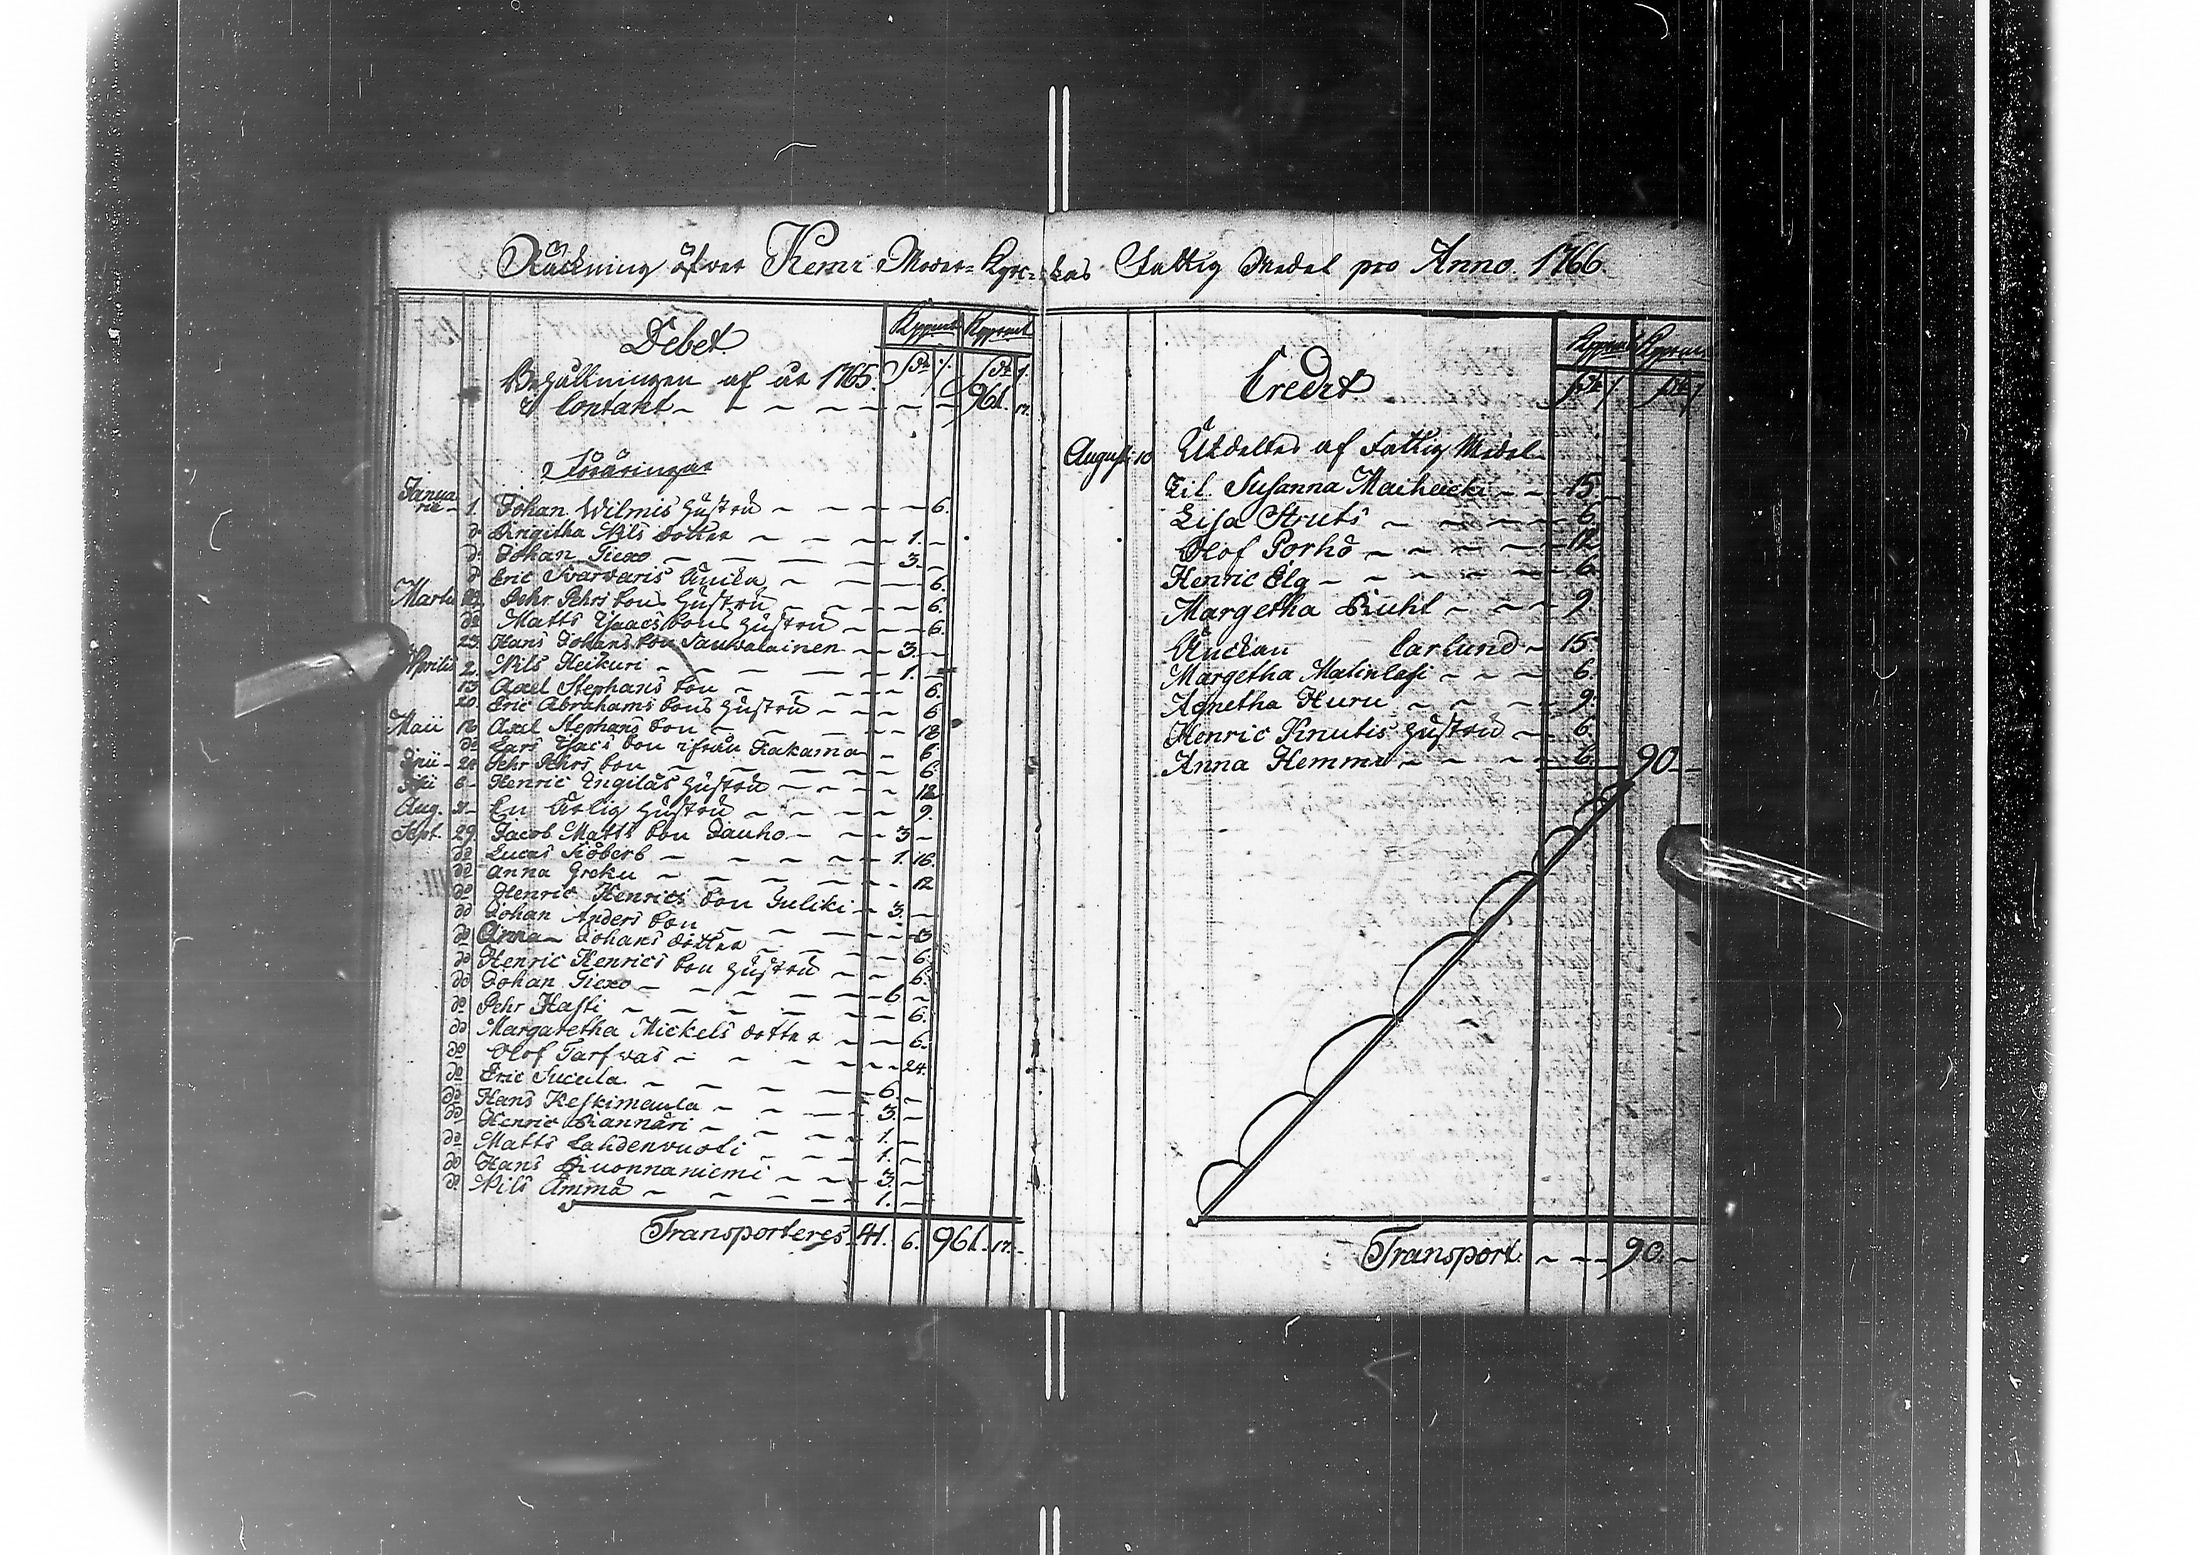 Räckning öfver Kemi Moder-Kyrc-kas Fattig Medel pro Anno. 1766.
Debet. Kppmt Kppmt
Behållningen af år 1765.
Contant - - - - - - 961. 17.
Föräringar
Januarii 1. Johan Wilmis hustru - - - - 6.
do Birgitha Nils dotter - - - 1. -
do Johan Tiexo - - - - 3. -
do Eric Svarvaris Änika - - - 6.
Martii Pehr Pehrs sons hustru - - - 6.
do Matts Isaacs sons hustru - - - 6.
25. Hans Johans son Sauvalainen - - 3. -
Aprilis 2. Nils Heikuri - - - - 1. -
13. Axel Stephans son - - - - 6.
20. Eric Abrahams sons hustru - - - 6.
Maii 18 Axel Stephans son - - - - 18.
do Lars Isacs son ifrån Kakama - 6.
Junii - 24 Pehr Pehrs son - - - - 6.
Julii 6 - Henric Engilas hustru - - - - 12.
Aug. 31 - En ärlig hustru - - - - 9.
Sept. 29. Jacob Matts son Jauho - - - 3 -
do Lucas Siöberb - - - - 1. 16.
do Anna Greku - - - - - 12
do Henric Henrics son Juliki - 3. -
do Johan Anders son - - - - 3.
do Anna - Johans dotter - - - 6.
do Henric Henrics son hustru - - - 6.
do Johan Tiexo - - - - 6 -
do Pehr Hasti - - - - - 6.
do Margaretha Mickels dotter - - 6.
do Olof Tarfvas - - - - - 24.
do Eric Sucula - - - - 6. -
do Hans Keskimaula - - - 3. -
do Henric Kiannäri - - - - 1. -
do Matts Lahdenvuoti - - - 1. -
do Hans Kuonnaniemi - - - 3. -
do Nils Ämmä - - - - 1. -
Transporteres. 41. 6. 961. 17.
Kppmt Kppmt
Credit
Augusti 10 Utdeltes af Fattig Medel
Til Susanna Maihacki - - 15. -
Lisa Struts - - - - 6.
Olof Porho - - - - - 12
Henric Elg - - - - - 6.
Margetha Kuht - - - 9
Änckan Carlund - 15.
Margetha Matinlasi - - - 6.
Agnetha Huru - - - - 9.
Henric Knutis hustru - - 6.
Anna Hemmi - - - - 6. 90 -
Transport. - - - 90. -